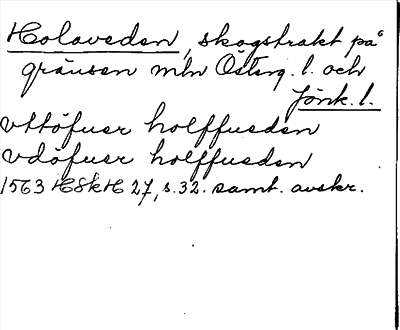 Holaveden, skogstrakt på
gränsen mln Österg. l. och
Jönk. l.
vttöfuer holffueden
vdöfuer holffueden
1563 HSkH 27, s. 32. samt. avskr.